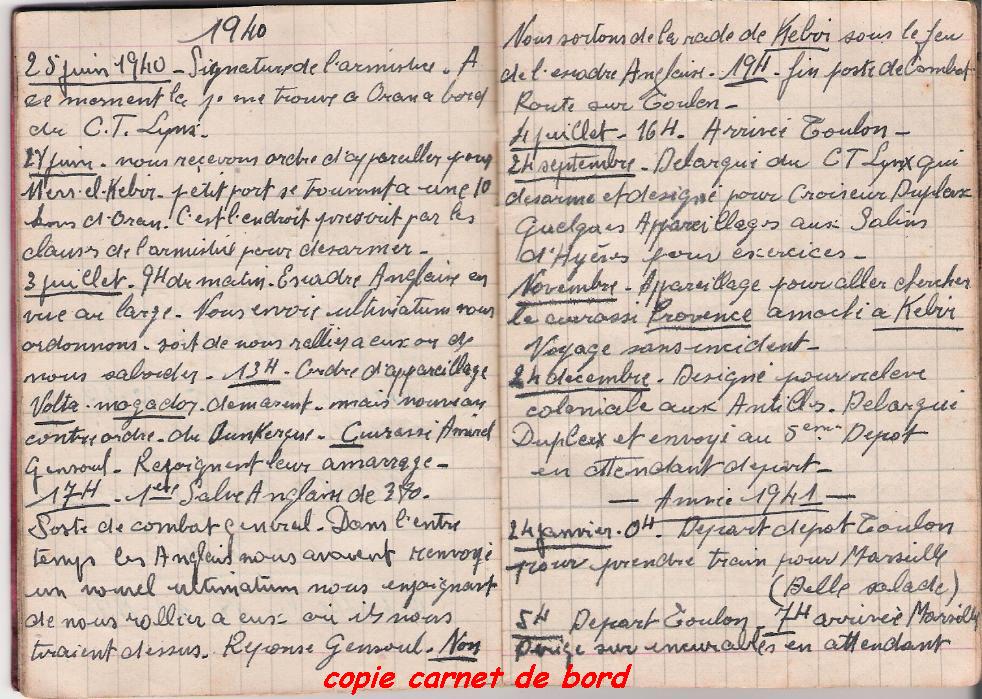 1940
25 juin 1940 - Signature de l'armistice. A
ce moment là je me trouve à Oran a bord
du C.T. Lynx.
27 juin. nous reçevons ordre d'appareiller pour
Mers-el-Kebir. petit port se trouvant a une 10
Kms d'Oran. C'est l'endroit prescrit par les
clauses de l'armistice pour desarmer -
3 juillet. 9H du matin. Escadre Anglaise en
vue au large. Nous envoie ultimatum nous
ordonnons. soit de nous rallier a eux ou de
nous saborder. 13H. Ordre d'appareillage
Volta. mogador. demarent. mais nouveau
contre ordre. du Dunkerque. Cuirassé Amirel
Gensoul. Rejoignent leur amarrage -
17H. 1ere Salve Anglaise de 380.
Poste de combat general. Dans l'entre
temps les Anglais nous avaient renvoyé
un nouvel ultimatum nous enjoignant
de nous rallier a eux où ils nous
tiraient dessus. Reponse Gensoul. Non
Nous sortons de la rade de Kebir sous le feu
de l'escadre Anglaise. 19H. fin poste de Combat
Route sur Toulon -
4 juillet - 16H. Arrivée Toulon -
24 septembre. Debarqué du CT Lynx qui
desarme et designé pour Croiseur Dupleix
Quelques Appareillages aux Salins
d'Hyères pour exercices -
Novembre. Appareillage pour aller chercher
le cuirassé Provence amoché a Kebir
Voyage sans incident -
24 decembre. Designé pour releve
coloniale aux Antilles. Debarqué
Dupleix et envoyé au 5eme Depot
en attendant depart -
— Année 1941 —
24 janvier. 0H. Depart depot Toulon
pour prendre train pour Marseille
(Belle salade)
5H Depart Toulon. 7H arrivée Marseille
Dirigé sur incurables en attendant
copie carnet de bord